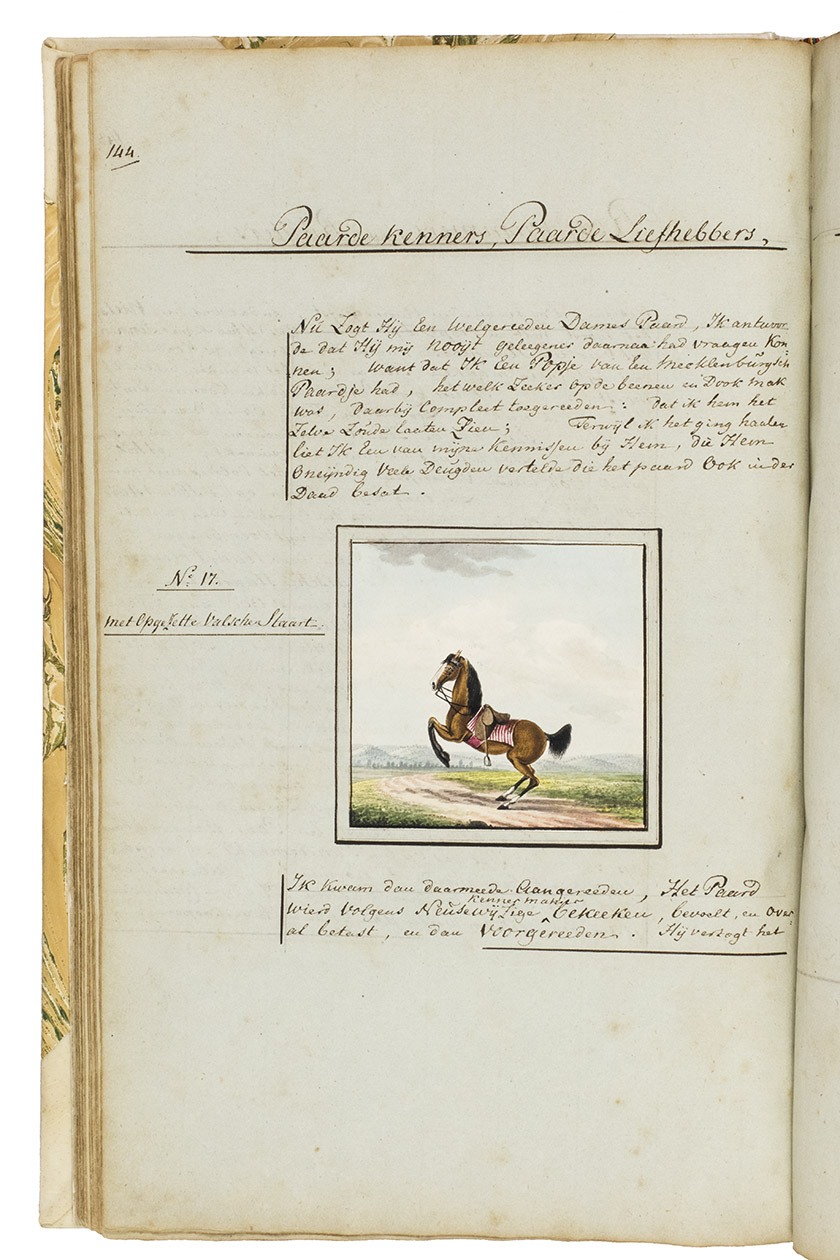 144.
Paarde kenners, Paarde Liefhebbers,
Nú Zogt Hÿ Een welgereeden Dames Paard, Ik antwoor
de dat Hÿ mÿ nooÿt geleegener daarna had vraagen kon=
nen; want dat Ik Een Popje van Een Mecklenbúrgsch
Paardje had, het welk Zeeker op de beenen en Dook mak
was, daarbÿ Compleet toegereeden: dat ik hem het
Zelve Zoúde laaten Zien; Terwÿl ik het ging haalen
liet Ik Een van mÿne Kennissen bÿ Hem, die Hem
Oneÿndig Veele Deúgden vertelde die het paard Ook in der
Daad besat.
No. 17.
met OpgeZette Valschen Staart.
Ik kwam dan daarmeede Aangereeden, Het Paard
kenner manier
wierd volgens NeúsewÿZige bekeeken, bevoelt, en Over=
al betast, en dan Voorgereeden. Hÿ verzogt het